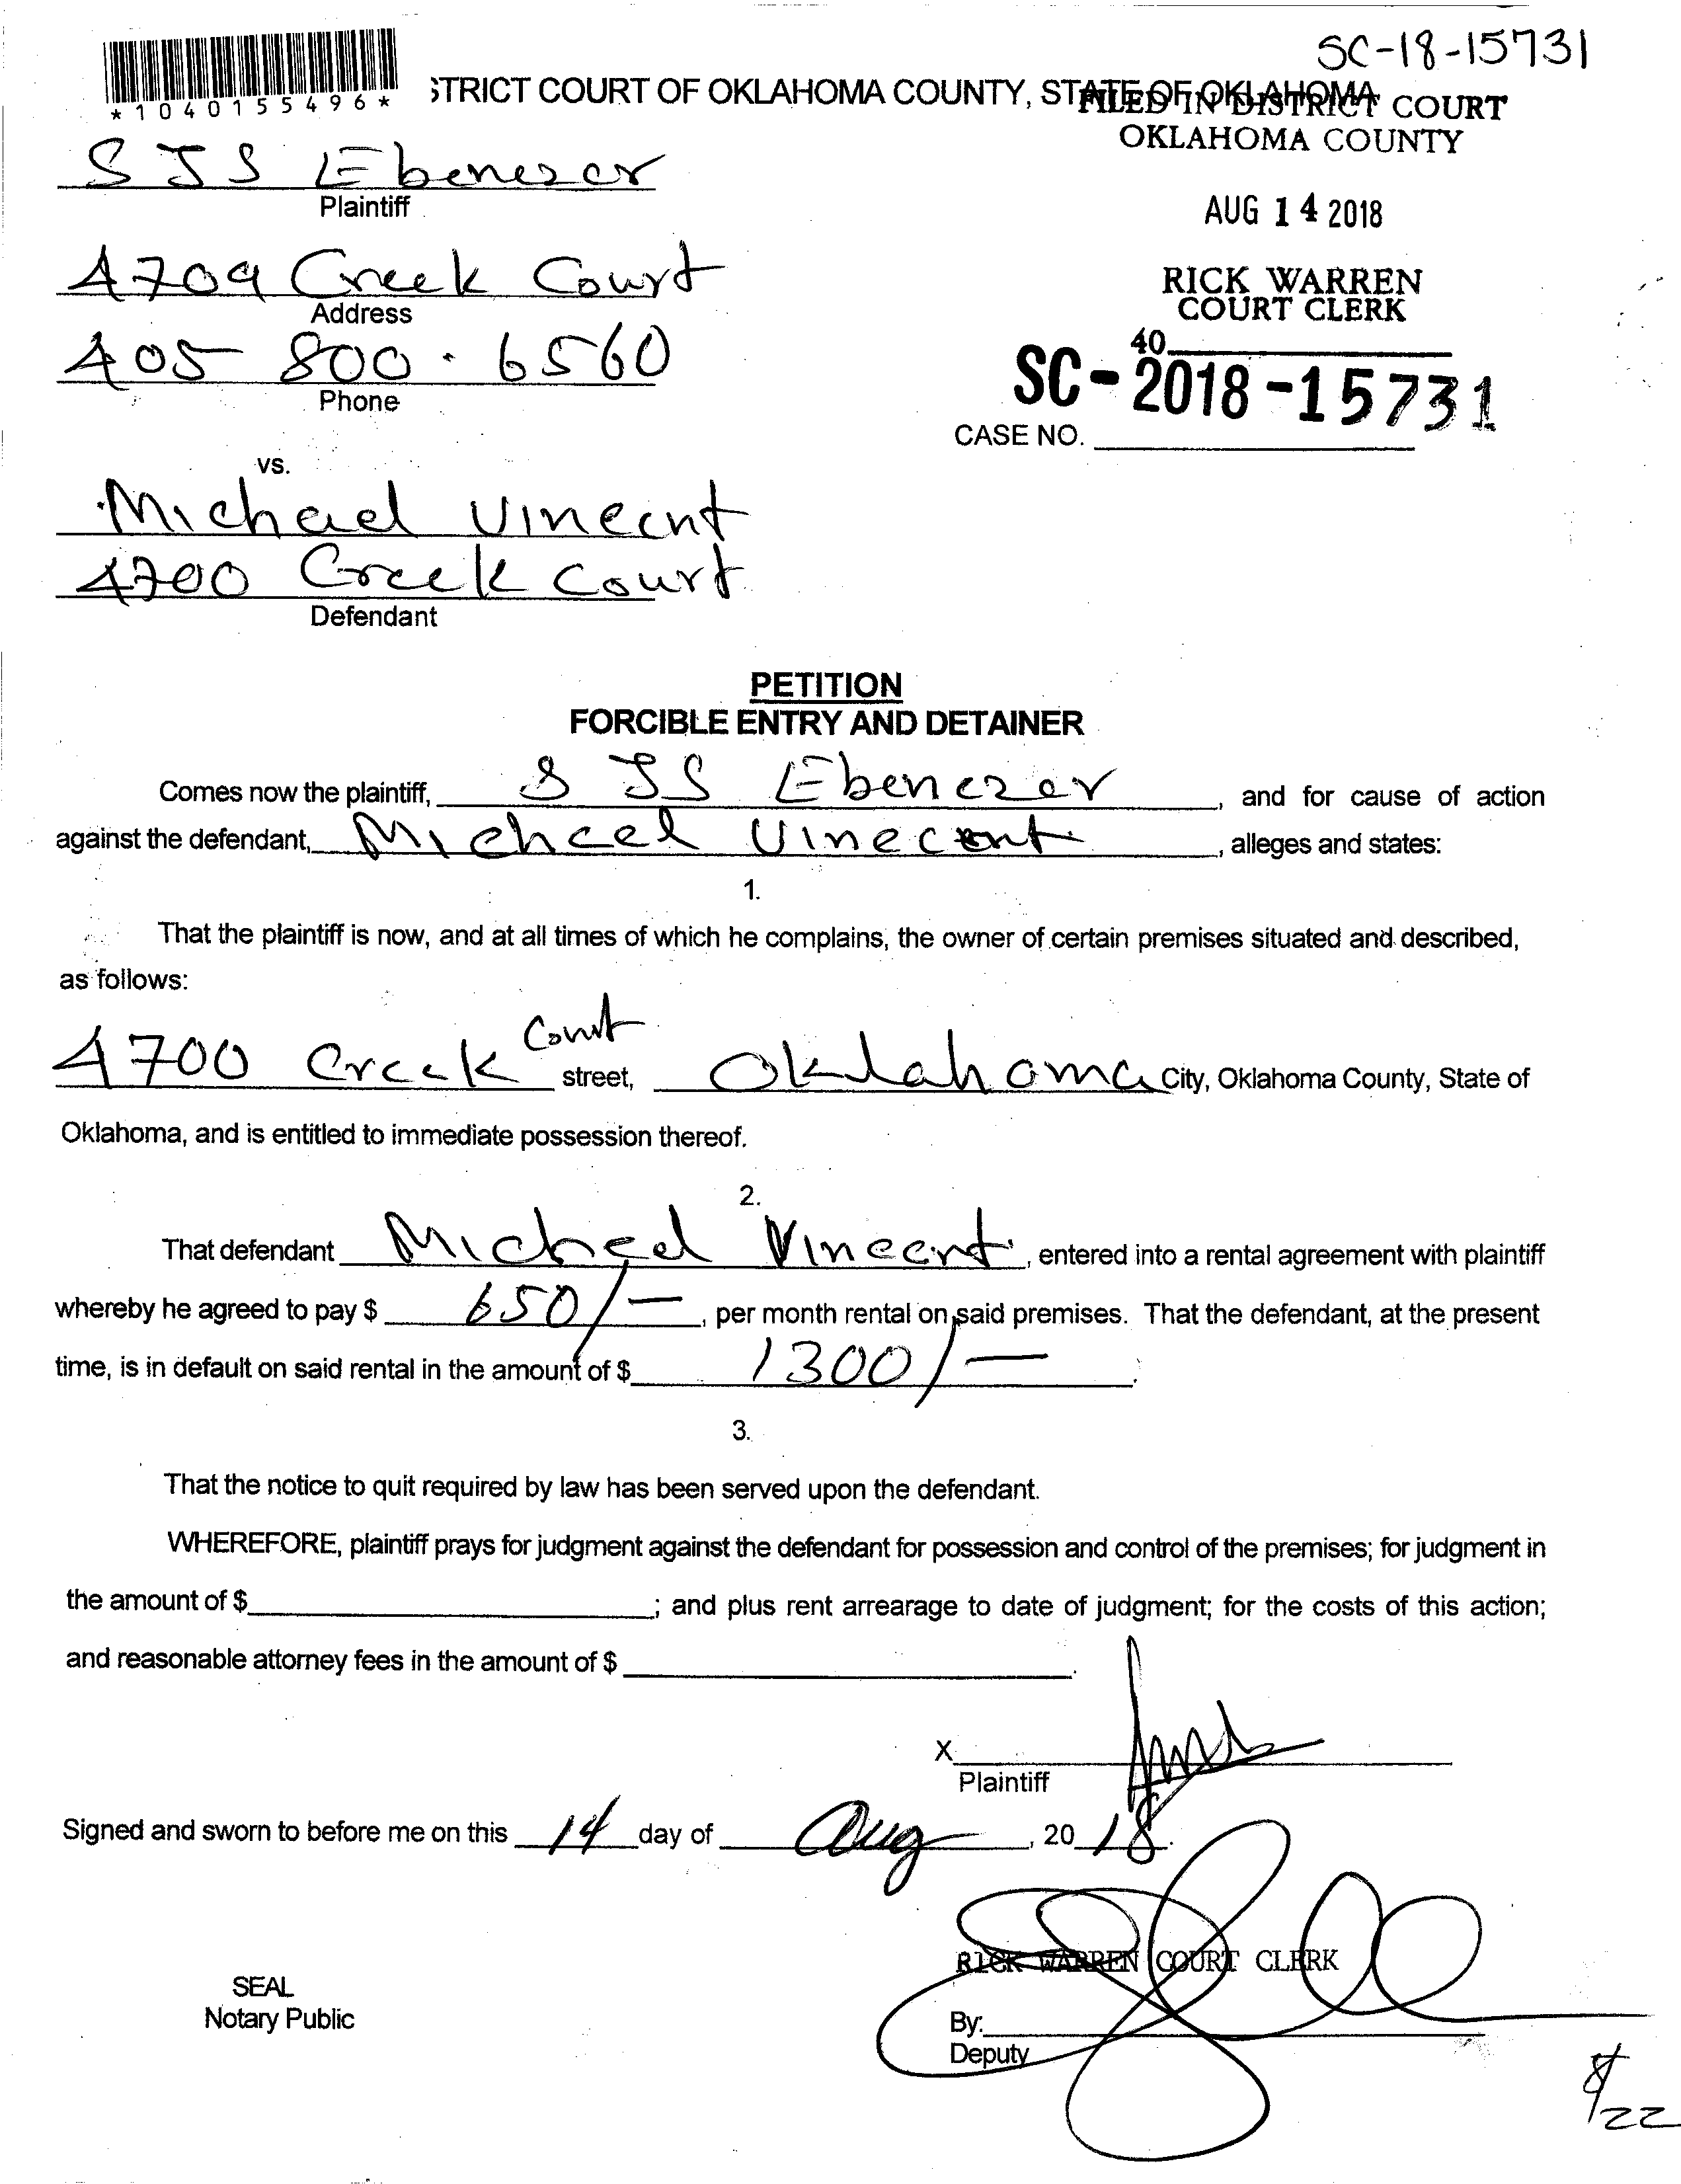 SC-18-15731
*1040155496*
STRICT COURT OF OKLAHOMA COUNTY, STATE OF OKLAHOMA
FILED IN DISTRICT COURT
OKLAHOMA COUNTY
S J S Ebenezer
Plaintiff
AUG 14 2018
4709 Creek Court
Address
RICK WARREN
COURT CLERK
405 800 · 6560
Phone
40
SC-2018-15731
CASE NO.
vs.
Michael Vinecnt
4700 Creek Court
Defendant
PETITION
FORCIBLE ENTRY AND DETAINER
Comes now the plaintiff, S J S Ebenezer, and for cause of action
against the defendant, Michael Vinecent, alleges and states:
1.
That the plaintiff is now, and at all times of which he complains, the owner of certain premises situated and described,
as follows:
4700 Creek Court street, Oklahoma City, Oklahoma County, State of
Oklahoma, and is entitled to immediate possession thereof.
2.
That defendant Michael Vinecnt, entered into a rental agreement with plaintiff
whereby he agreed to pay $ 650/-, per month rental on said premises. That the defendant, at the present
time, is in default on said rental in the amount of $ 1300/-.
3.
That the notice to quit required by law has been served upon the defendant.
WHEREFORE, plaintiff prays for judgment against the defendant for possession and control of the premises; for judgment in
the amount of $; and plus rent arrearage to date of judgment; for the costs of this action;
and reasonable attorney fees in the amount of $.
X
Plaintiff
Signed and sworn to before me on this 14 day of Aug, 20 18.
RICK WARREN COURT CLERK
SEAL
Notary Public
By:
Deputy
8/22